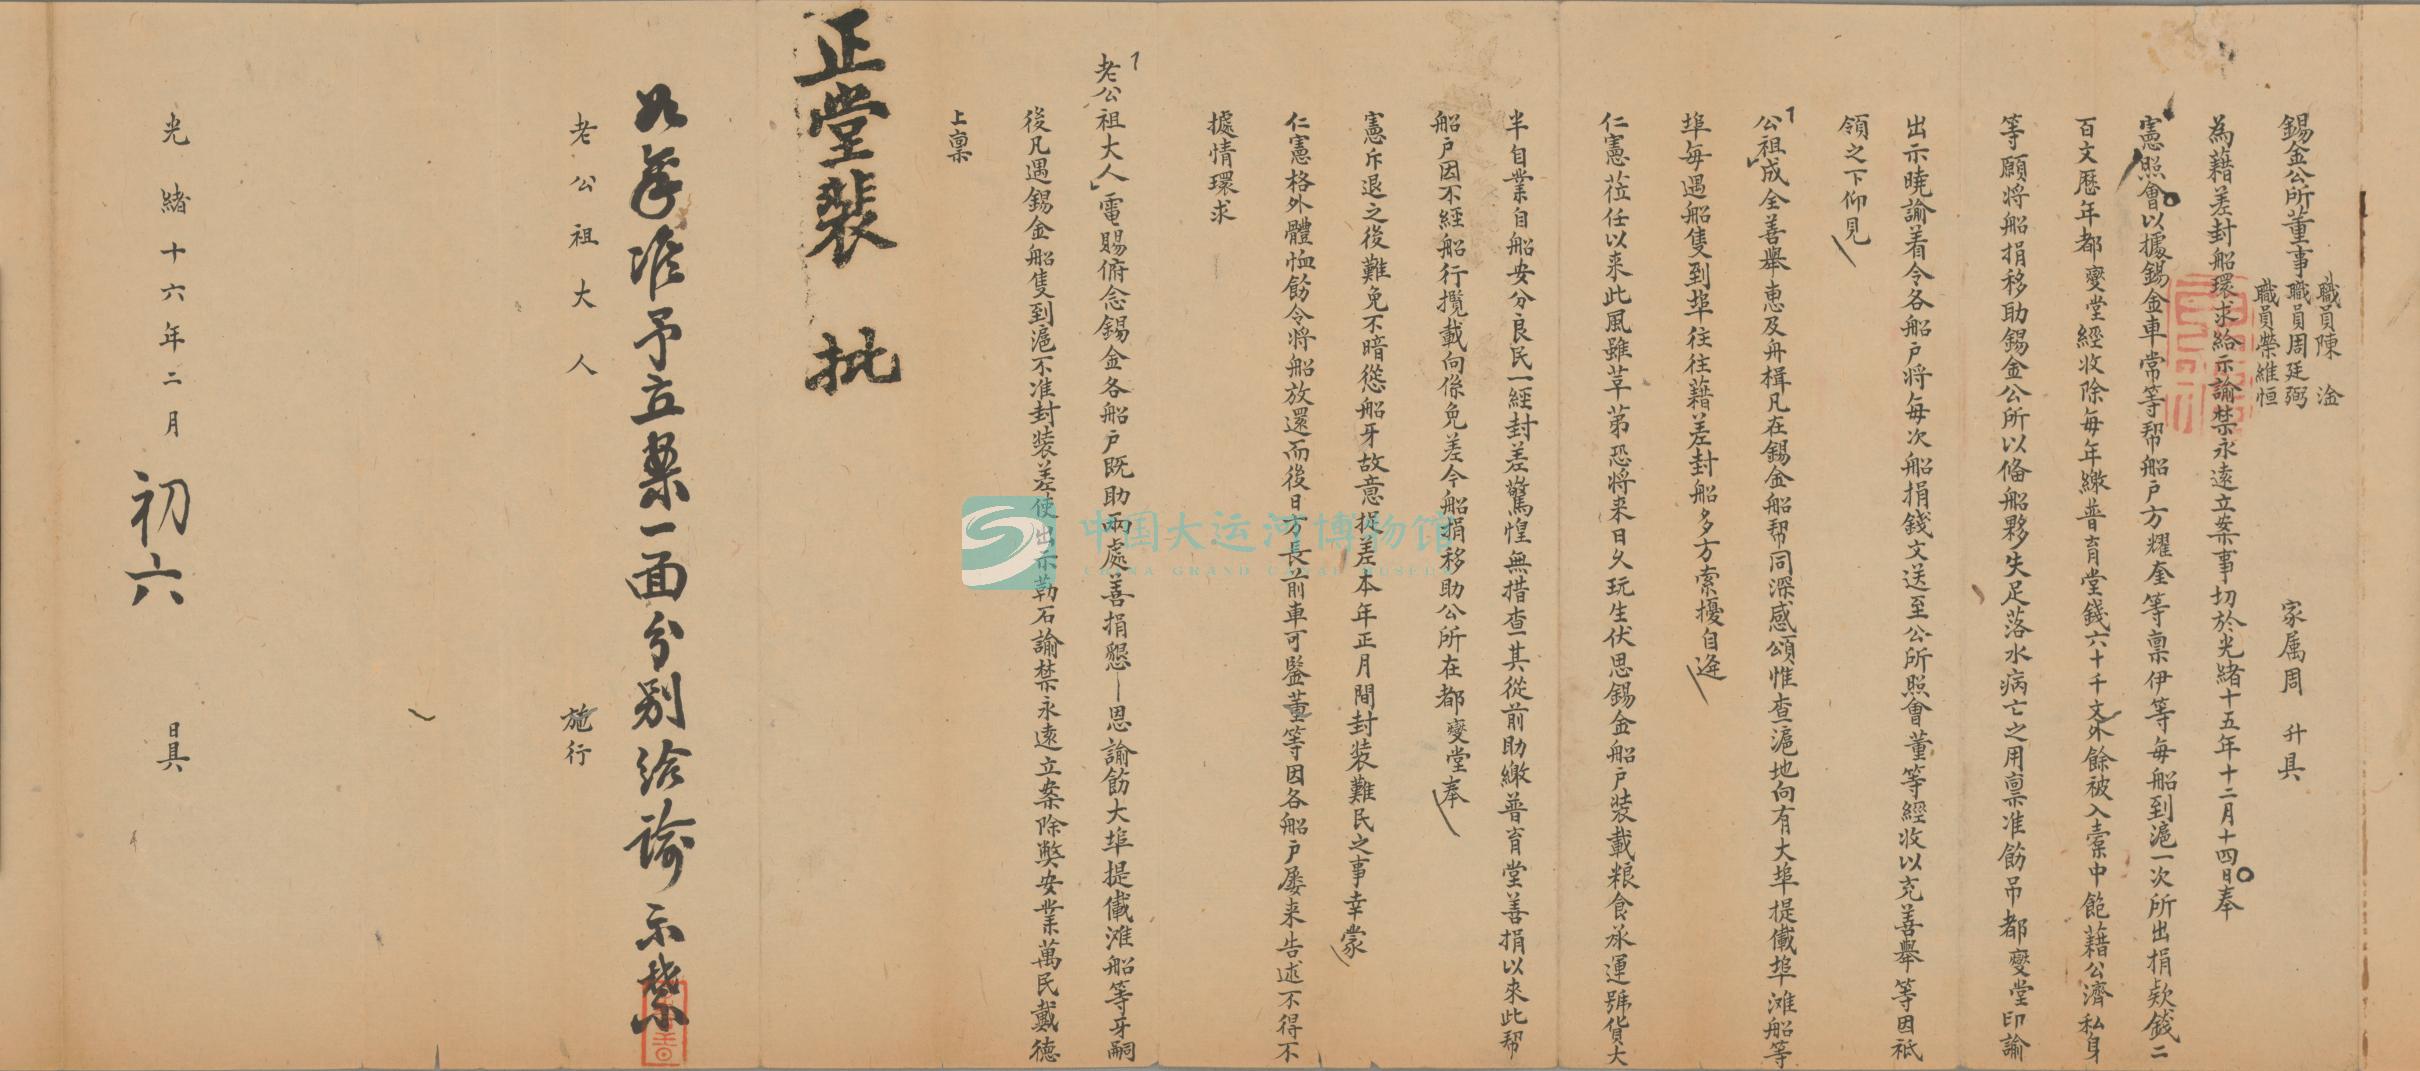 錫金公所董事職員周廷弼 家属周升具
職員陳淦
職員榮維恒
為藉差封船環求給示諭禁永遠立案事切於光緒十五年十二月十四日奉
憲照會以據錫金車常等帮船户方耀奎等禀伊等每船到滬一次所出捐欵錢二
百文歷年都夑堂經收除每年繳普育堂錢六十千文外餘被入橐中飽藉公濟私身
等願將船捐移助錫金公所以俻船夥失足落水病亡之用禀准飭吊都夑堂印諭
出示曉諭着令各船户将每次船捐錢文送至公所照會董等經收以充善舉等因祗
領之下仰見
公祖成全善舉惠及舟楫凡在錫金船帮同深感頌惟查滬地向有大埠提儎埠滩船等
埠每遇船隻到埠往往藉差封船多方索擾自逄
仁憲莅任以来此風雖革第恐将来日久玩生伏思錫金船户装載粮食承運號貨大
半自業自船安分良民一經封差驚惶無措查其從前助繳普育堂善捐以來此帮
船户因不經船行攬載向係免差今船捐移助公所在都夑堂奉
憲斥退之後難免不暗慫船牙故意捉差本年正月間封装難民之事幸蒙
仁憲格外體恤飭令将船放還而後日方長前車可鍳董等因各船户屡来告述不得不
據情環求
老公祖大人電賜俯念錫金各船户既助兩處善捐懇恩諭飭大埠提儎滩船等牙嗣
後凡遇錫金船隻到滬不准封装差使出示勒石諭禁永遠立案除弊安業萬民戴德
上禀
正堂裴 批
如禀准予立案一面分别给谕示禁
老公祖大人 施行
光緒十六年二月初六日具
中国大运河博物馆
CHINA GRAND CANAL MUSEUM